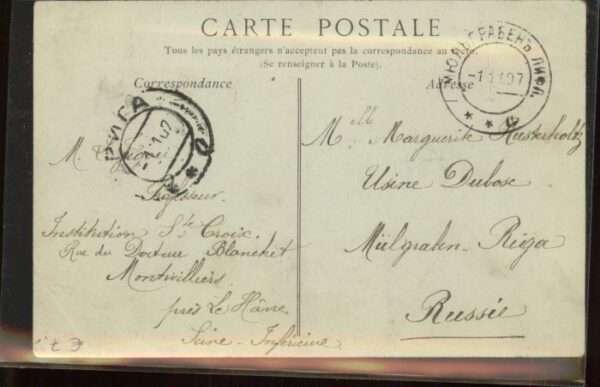 CARTE POSTALE
Tous les pays étrangers n'acceptent pas la correspondance au recto.
(Se renseigner à la Poste).
Correspondance
Adresse
РИГА
1 1 07
МЮЛЬГРАБЕНЪ ЛИФЛ.
-1 1 07
M.
Professeur.
Institution Ste Croix.
Rue du Docteur Blanchet
Montivilliers
près Le Hâvre
Seine-Inférieure
Melle Marguerite Husterholtz
Usine Dubosc
Mülgrabn-Riga
Russie